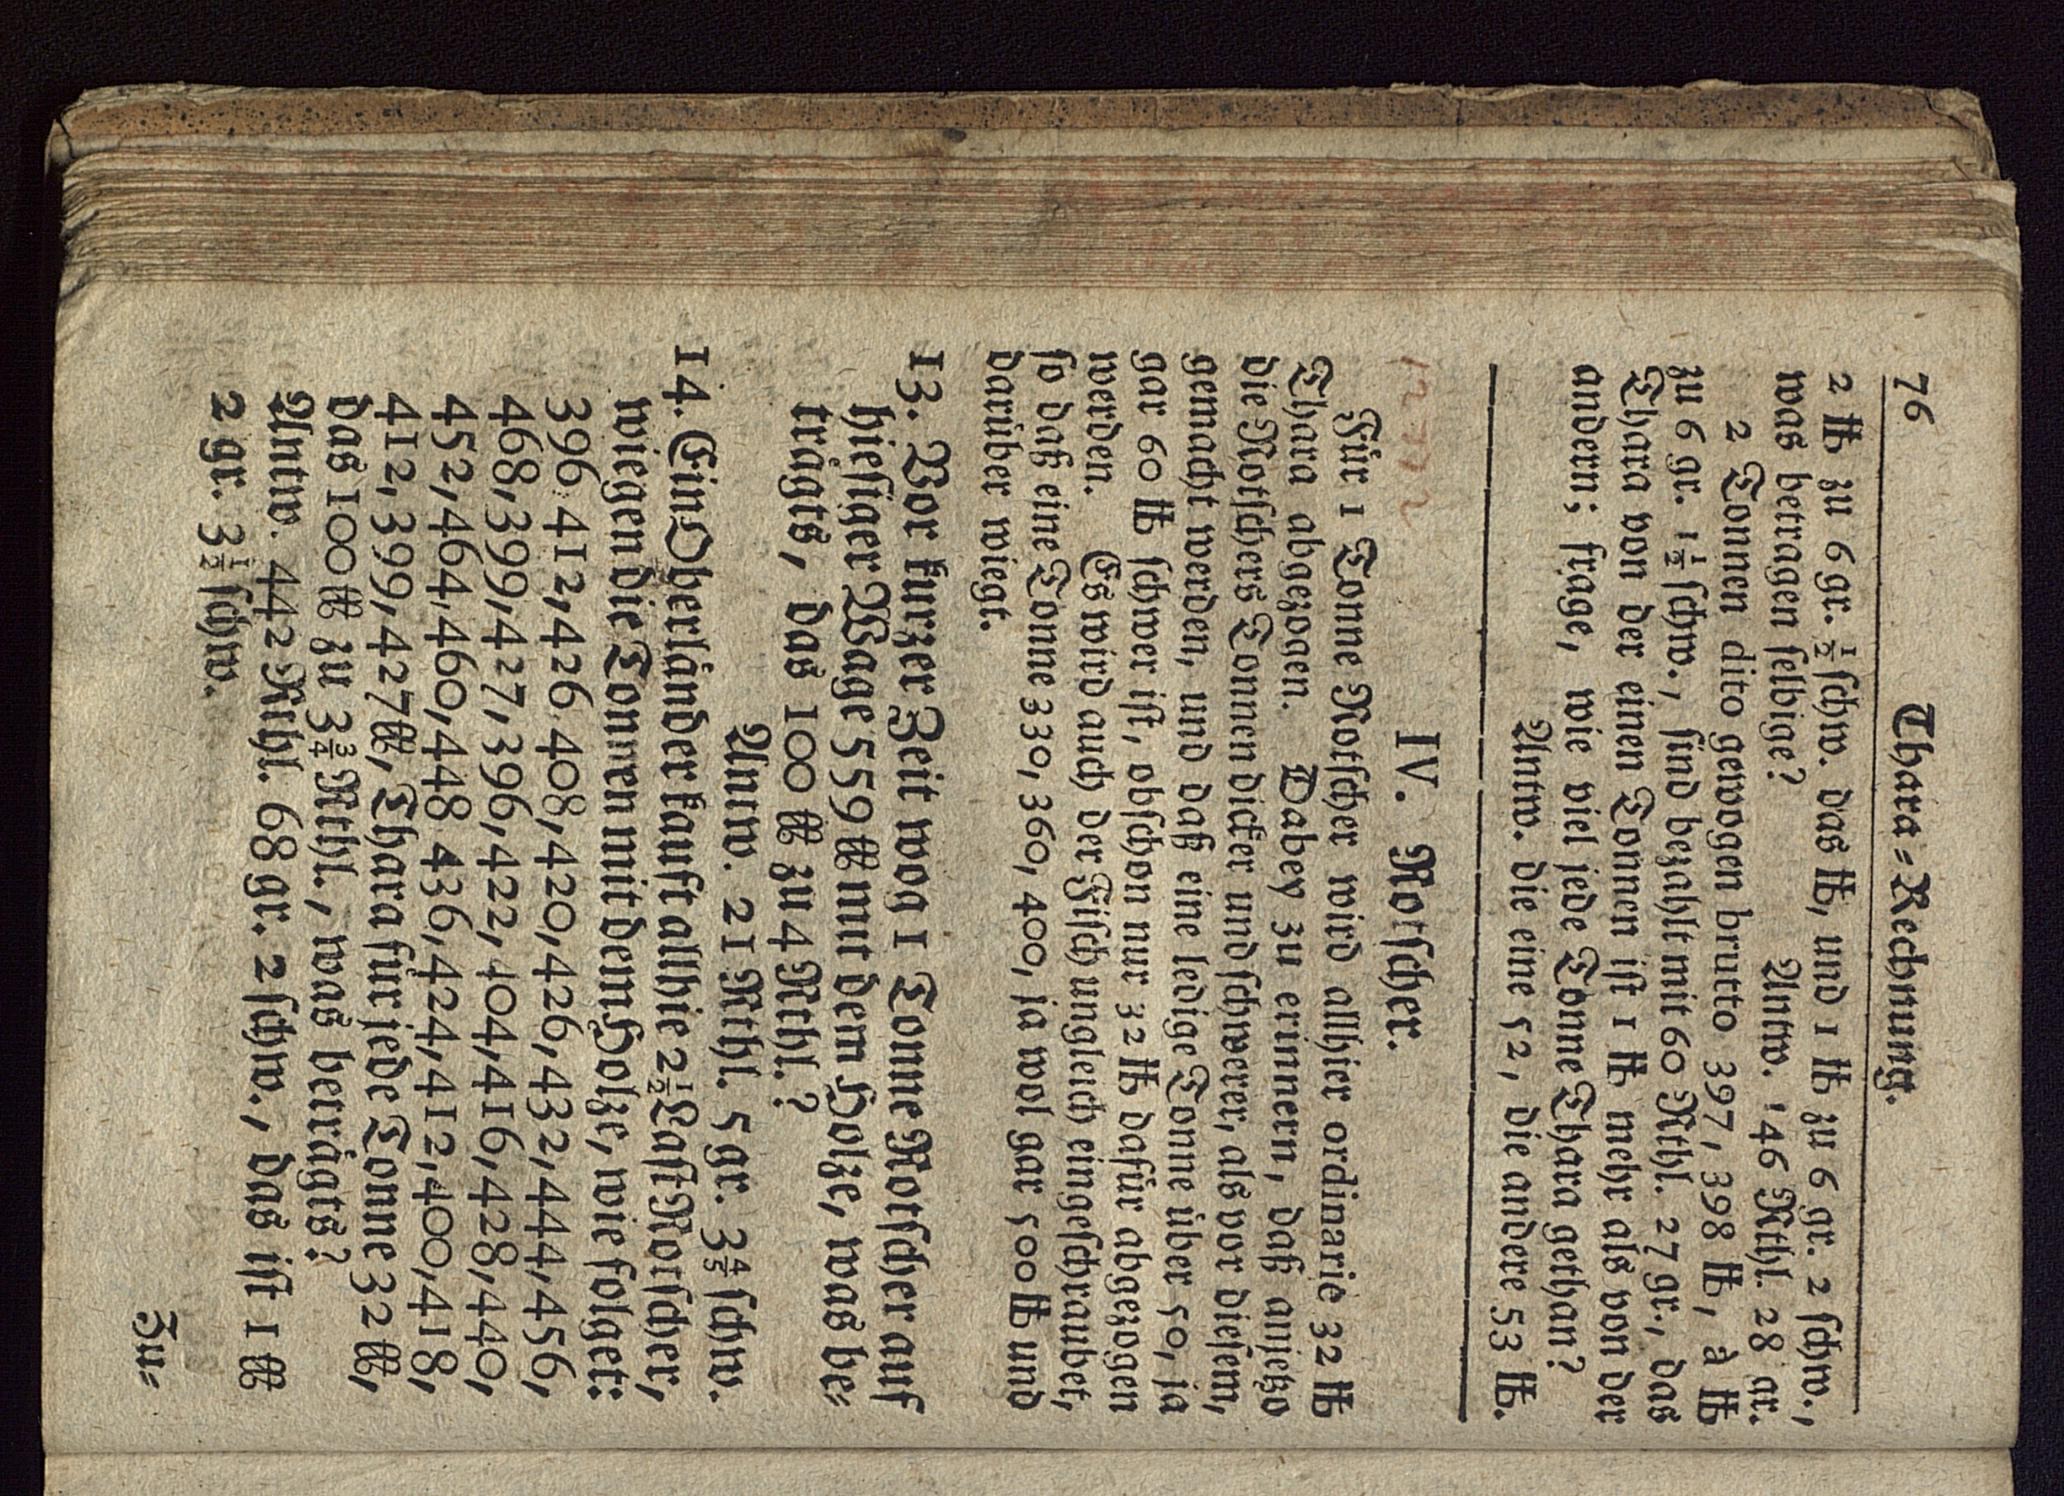 76 Thara-Rechnung.
2 ℔ zu 6 gr. ½ schw. das ℔, und 1 ℔ zu 6 gr. 2 schw.,
was betragen selbige? Antw. 146 Rthl. 28 gr.
2 Tonnen dito gewogen brutto 397, 398 ℔, à ℔
zu 6 gr. 1½ schw., sind bezahlt mit 60 Rthl. 27 gr., das
Thara von der einen Tonnen ist 1 ℔ mehr als von der
andern; frage, wie viel jede Tonne Thara gethan?
Antw. die eine 52, die andere 53 ℔.
IV. Rotscher.
Für 1 Tonne Rotscher wird allhier ordinarie 32 ℔
Thara abgezogen. Dabey zu erinnern, daß anjetzo
die Rotschers Tonnen dicker und schwerer, als vor diesem,
gemacht werden, und daß eine ledige Tonne über 50, ja
gar 60 ℔ schwer ist, obschon nur 32 ℔ dafür abgezogen
werden. Es wird auch der Fisch ungleich eingeschraubet,
so daß eine Tonne 330, 360, 400, ja wol gar 500 ℔ und
darüber wiegt.
13. Vor kurzer Zeit wog 1 Tonne Rotscher auf
hiesiger Wage 559 ℔ mit dem Holze, was be-
trägts, das 100 ℔ zu 4 Rthl.?
Antw. 21 Rthl. 5 gr. 3⅘ schw.
14. Ein Oberländer kauft allhie 2½ Last Rotscher,
wiegen die Tonnen mit dem Holze, wie folget:
396 412, 426 408, 420, 426, 432, 444, 456,
468, 399, 427, 396, 422, 404, 416, 428, 440,
452, 464, 460, 448 436, 424, 412, 400, 418,
412, 399, 427 ℔, Thara für jede Tonne 32 ℔,
das 100 ℔ zu 3¾ Rthl., was beträgts?
Antw. 442 Rthl. 68 gr. 2 schw., das ist 1 ℔
2 gr. 3½ schw.
Zu-